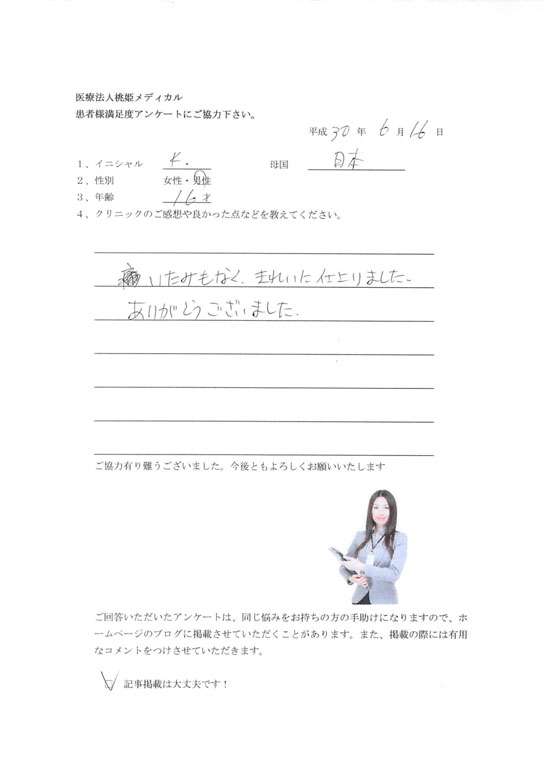 医療法人桃姫メディカル
患者様満足度アンケートにご協力下さい。
平成 30 年 6 月 16 日
1、イニシャル K. 母国 日本
2、性別 女性・男性
3、年齢 16 才
4、クリニックのご感想や良かった点などを教えてください。
いたみもなく、きれいに仕上りました。
ありがとうございました。
ご協力有り難うございました。今後ともよろしくお願いいたします
ご回答いただいたアンケートは、同じ悩みをお持ちの方の手助けになりますので、ホ
ームページのブログに掲載させていただくことがあります。また、掲載の際には有用
なコメントをつけさせていただきます。
記事掲載は大丈夫です！